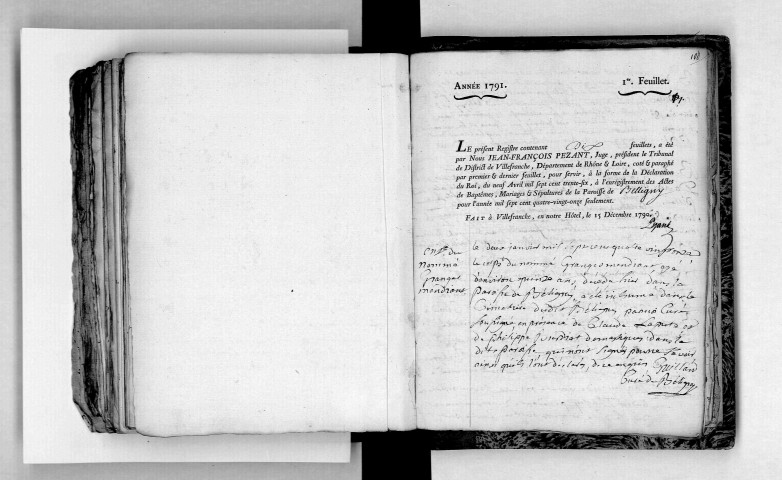 ANNÉE 1791.
1er. Feuillet.
LE présent Registre contenant Dix feuillets, a été
par Nous JEAN-FRANÇOIS PEZANT, Juge, président le Tribunal
de District de Villefranche, Département de Rhône & Loire, coté & paraphé
par premier & dernier feuillet, pour servir, à la forme de la Déclaration
du Roi, du neuf Avril mil sept cent trente-six, à l'enregistrement des Actes
de Baptêmes, Mariages & Sépultures de la Paroisse de Belligny
pour l'année mil sept cent quatre-vingt-onze seulement.
FAIT à Villefranche, en notre Hôtel, le 15 Décembre 1790.
Pezant
du
nommé
le deux janvier mil sept cent quatre vingt onze
le corps du nommé agé
d'environ quinze ans, decedé hier dans la
Paroisse de Béligny, a été inhumé dans le
Cimetière dudit Béligny par moi Curé
soussigné en présence de Claude et
de Philippe domestiques dans la
dite Paroisse qui n'ont signés pour ne savoir
ainsi qu'ils l'ont déclaré, de ce enquis Guillard
Curé de Béligny